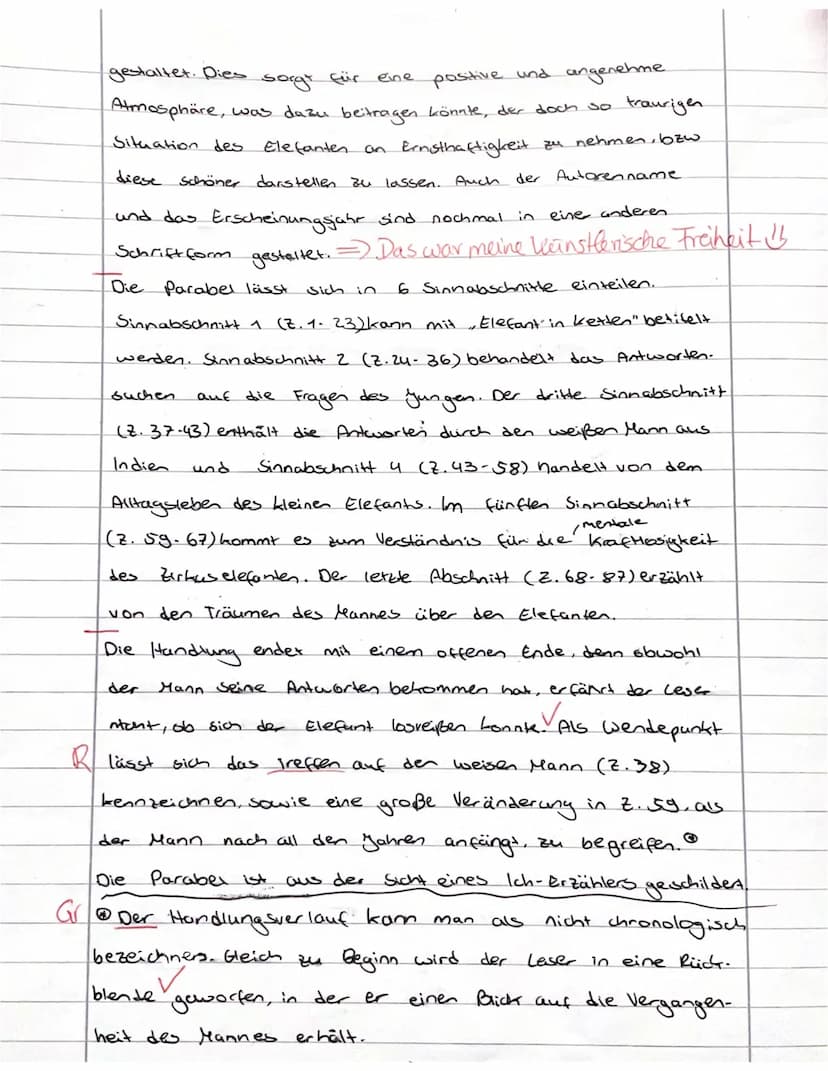 gestaltet. Dies sorgt für eine positive und angenehme
Atmosphäre, was dazu beitragen könnte, der doch so traurigen
Situation des Elefanten an Ernsthaftigkeit zu nehmen, bzw
diese schöner darstellen zu lassen. Auch der Autorenname
und das Erscheinungsjahr sind nochmal in einer anderen
Schriftform gestaltet. => Das war meine künstlerische Freiheit
Die Parabel lässt sich in 6 Sinnabschnitte einteilen.
Sinnabschnitt 1 (Z. 1-23) kann mit „Elefant in Ketten" betitelt
werden. Sinnabschnitt 2 (Z. 24-36) behandelt das Antworten-
suchen auf die Fragen des Jungen. Der dritte Sinnabschnitt
(Z. 37-43) enthält die Antworten durch den weißen Mann aus
Indien und Sinnabschnitt 4 (Z. 43-58) handelt von dem
Alltagsleben des kleinen Elefants. Im fünften Sinnabschnitt
mentale
(Z. 59-67) kommt es zum Verständnis für die Kraftlosigkeit
des Zirkuselefanten. Der letzte Abschnitt (Z. 68-87) erzählt
von den Träumen des Mannes über den Elefanten.
Die Handlung endet mit einem offenen Ende, denn obwohl
der Mann seine Antworten bekommen hat, erfährt der Leser
nicht, ob sich der Elefant losreißen konnte. Als Wendepunkt
R lässt sich das Treffen auf den weisen Mann (Z. 38)
kennzeichnen, sowie eine große Veränderung in Z. 59, als
der Mann nach all den Jahren anfängt, zu begreifen.
Die Parabel ist aus der Sicht eines Ich-Erzählers geschildert.
Gr Der Handlungsverlauf kann man als nicht chronologisch
bezeichnen. Gleich zu Beginn wird der Leser in eine Rück-
blende geworfen, in der er einen Blick auf die Vergangen-
heit des Mannes erhält.